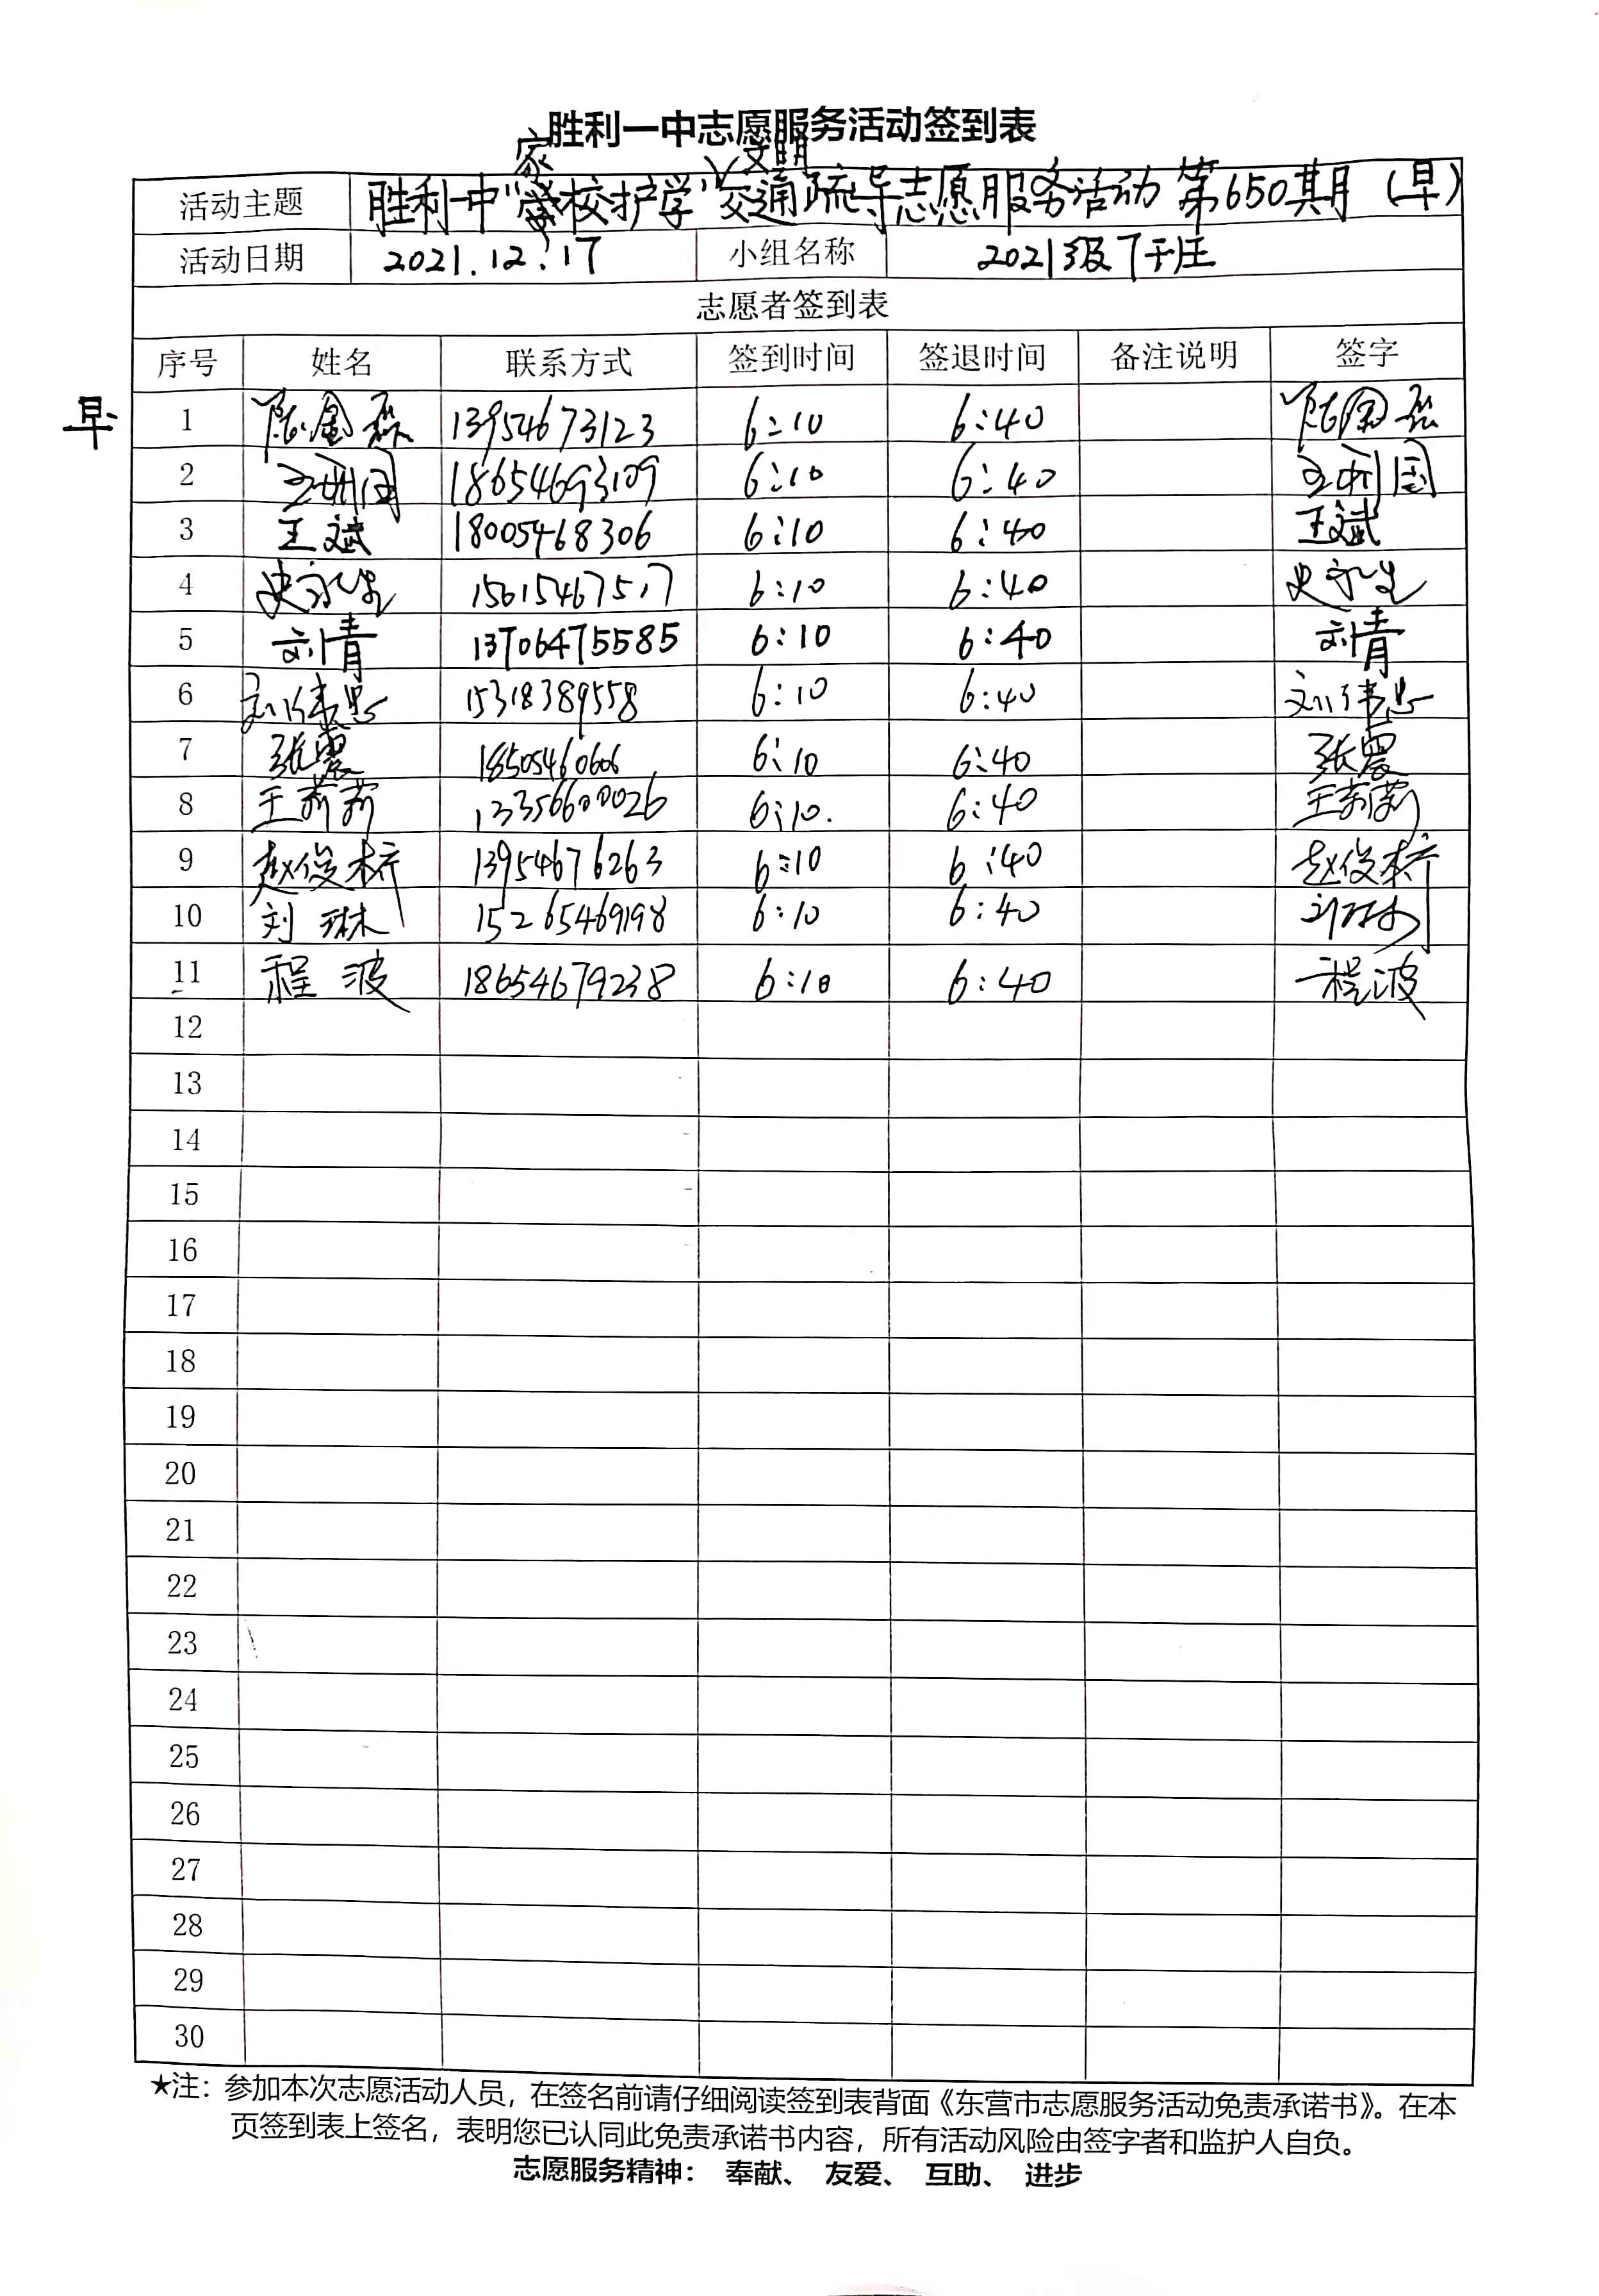 胜利一中志愿服务活动签到表
家 文明
活动主题 胜利一中“校护学”交通疏导志愿服务活动 第650期(早)
活动日期 2021.12.17 小组名称 2021级7班
志愿者签到表
序号 姓名 联系方式 签到时间 签退时间 备注说明 签字
早 1 陈金磊 13954673123 6:10 6:40 陈金磊
2 18654693109 6:10 6:40
3 王斌 18005468306 6:10 6:40 王斌
4 史永生 15615467517 6:10 6:40 史永生
5 刘青 13706475585 6:10 6:40 刘青
6 刘伟忠 15318389558 6:10 6:40 刘伟忠
7 张震 18505460606 6:10 6:40 张震
8 王莉莉 13356600026 6:10. 6:40 王莉莉
9 赵俊桥 13954676263 6:10 6:40 赵俊桥
10 刘琳 15265469198 6:10 6:40 刘琳
11 程波 18654679238 6:10 6:40 程波
12
13
14
15
16
17
18
19
20
21
22
23
24
25
26
27
28
29
30
★注：参加本次志愿活动人员，在签名前请仔细阅读签到表背面《东营市志愿服务活动免责承诺书》。在本
页签到表上签名，表明您已认同此免责承诺书内容，所有活动风险由签字者和监护人自负。
志愿服务精神： 奉献、 友爱、 互助、 进步